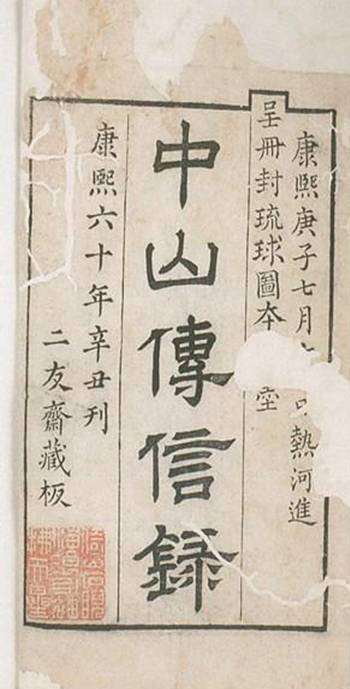 康熙庚子七月
熱河進
呈冊封琉球圖本
中山傳信録
康熙六十年辛丑刊
二友齋藏板